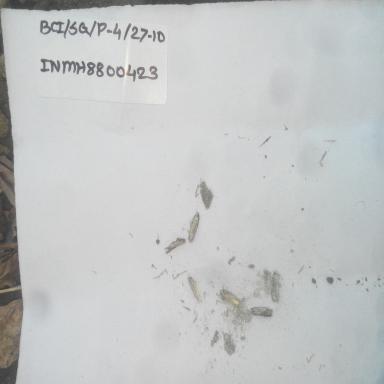 BCI/SG/P-4/27-10
INMH8800423